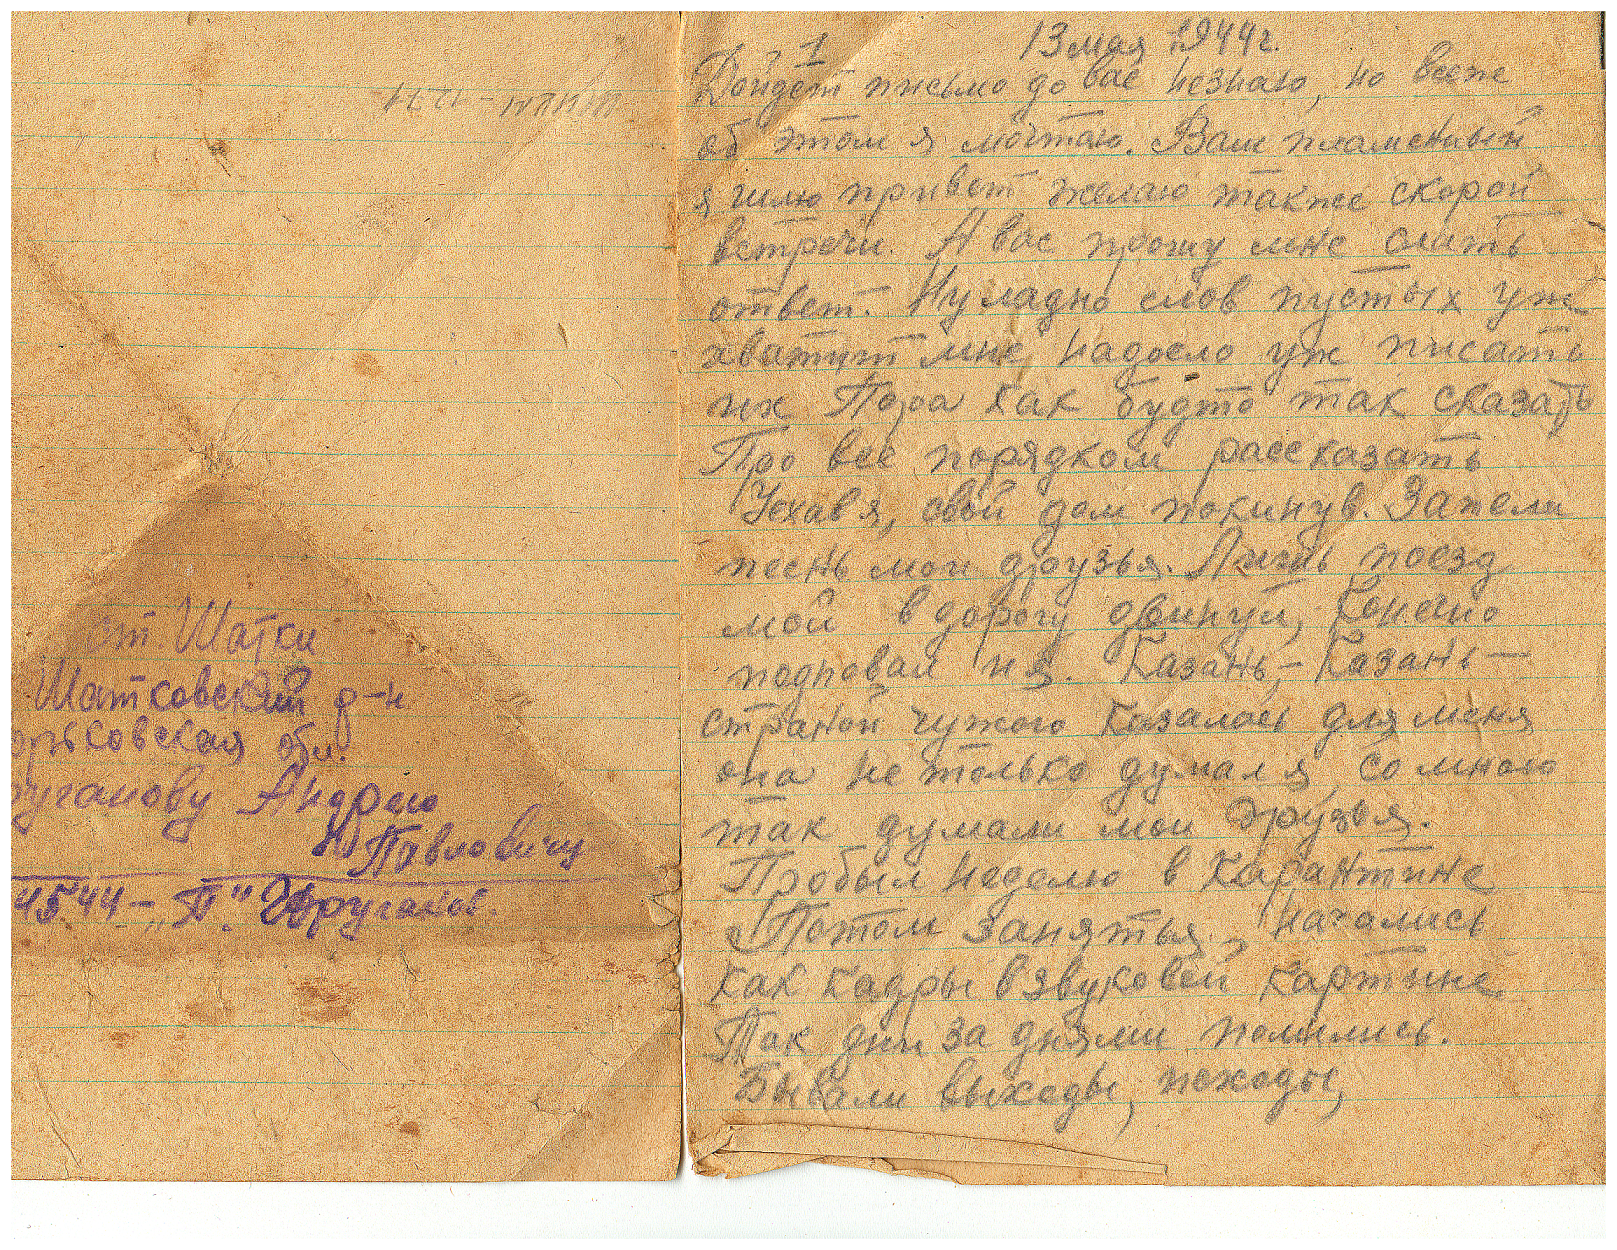 ст. Шатки
Шатковский р-н
орьковская обл.
руганову Андрею
Павловичу
45.44 – „П" Друганов.
1
13 мая 1944 г.
Дойдет письмо до вас незнаю, но всеж
об этом я мечтаю. Вам пламенный
я шлю привет желаю также скорой
встречи. А вас прошу мне слать
ответ. Ну ладно слов пустых уж
хватит мне, надоело уж писать
их Пора как будто так сказать
Про все порядком рассказать
Уехав я, свой дом покинув. Запели
песнь мои друзья. Лишь поезд
мой в дорогу двинул, Конечно
подповал и я. Казань, – Казань –
страной чужого казалась для меня
она не только думал я, со мною
так думали мои друзья.
Пробыл неделю в Карантине
Потом занятья, начались
как кадры в звуковой картине
Так дни за днями полились.
Бывали выходы, походы,